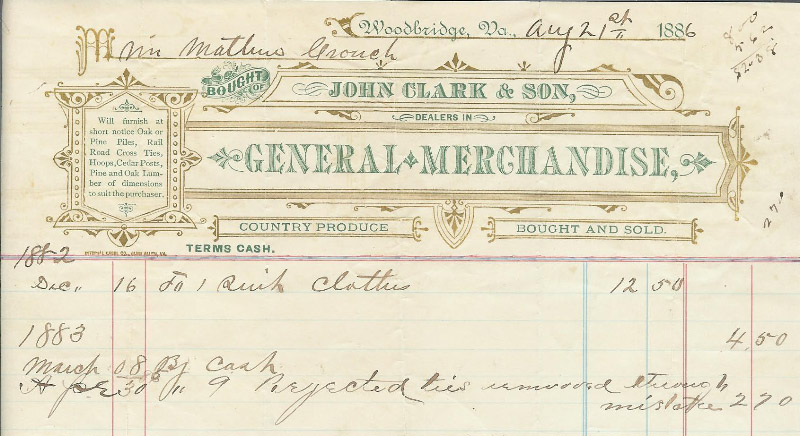 Woodbridge, Va., Aug 21st 1886
M Wm Mathew Crouch
BOUGHT OF
JOHN CLARK & SON,
DEALERS IN
GENERAL MERCHANDISE,
Will furnish at
short notice Oak or
Pine Piles, Rail
Road Cross Ties,
Hoops, Cedar Posts,
Pine and Oak Lum-
ber of dimensions
to suit the purchaser.
COUNTRY PRODUCE
BOUGHT AND SOLD.
TERMS CASH.
1882
Dec. 16 To 1 Suit Clothes 12 50
1883
4,50
March 08 By Cash
30 " 9 Rejected ties removed through
mistake 2 70
270